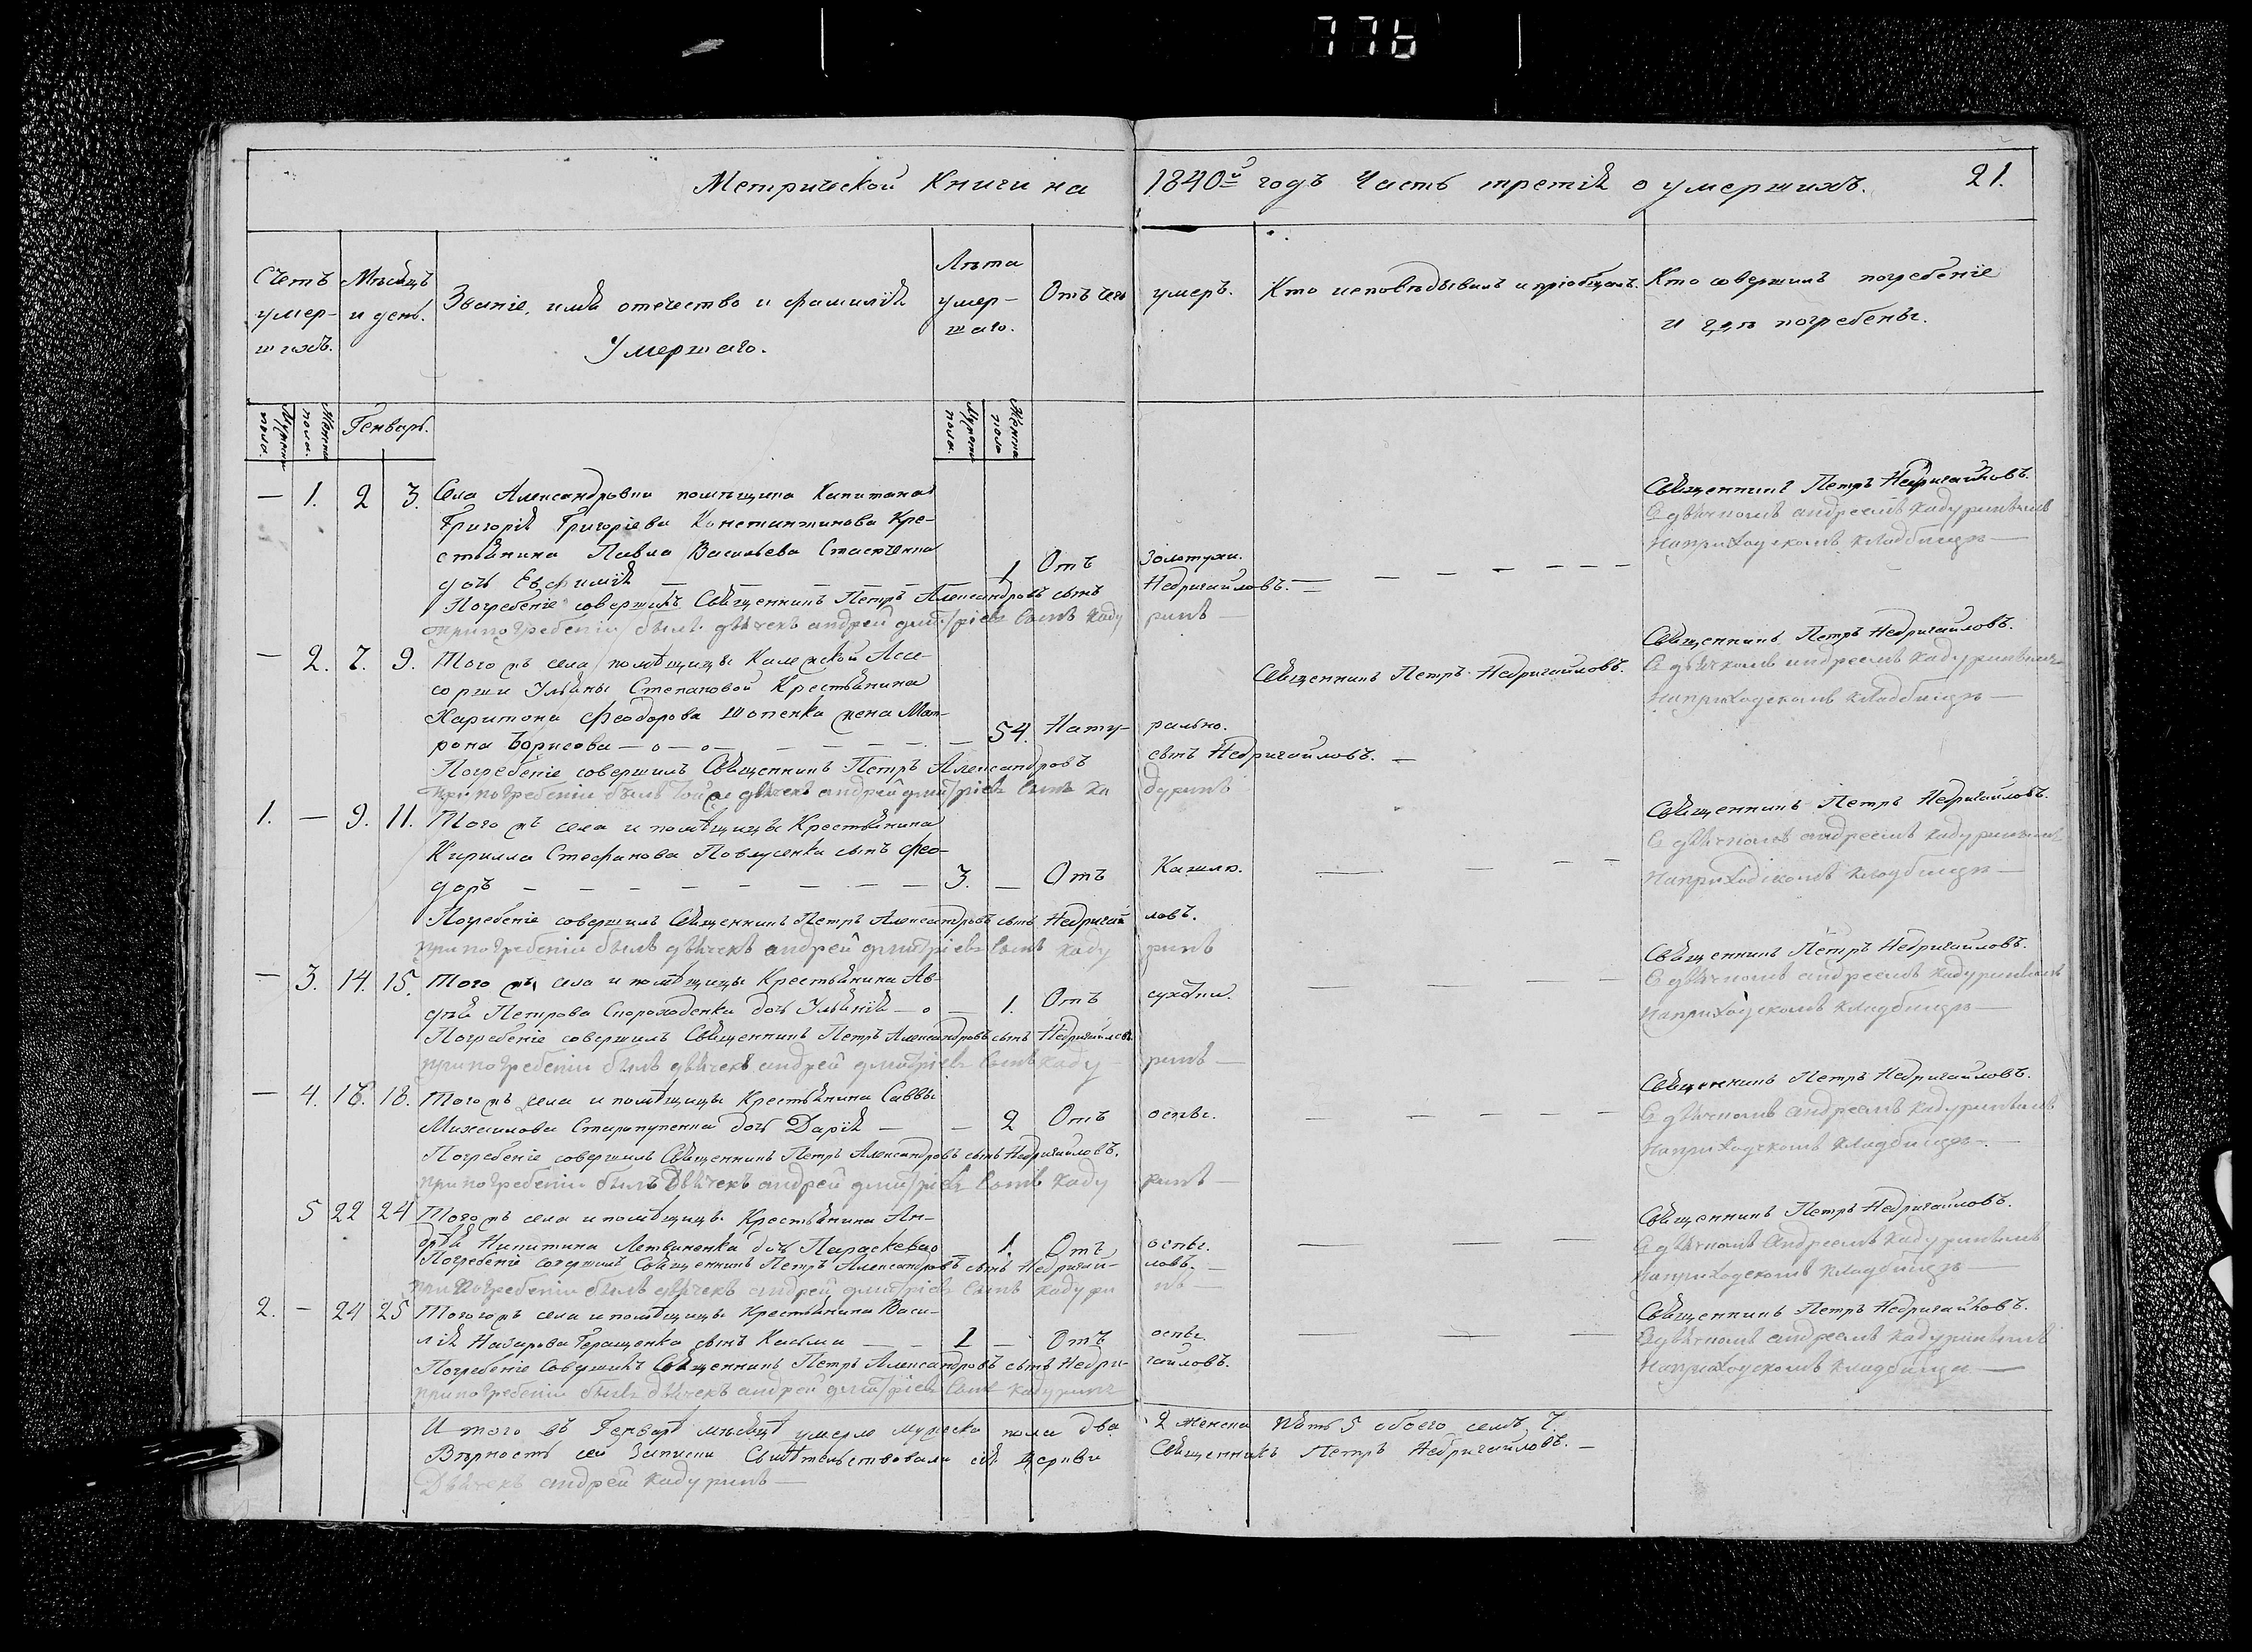 776
Метрической Книги на 1840й годъ Часть третія о умершихъ. 21.
Счетъ умер- шихъ.
Мѣсяцъ и день.
Званіе, имя отечество и фамилія
Умершаго.
Лѣта умер- шаго.
Отъ чего умеръ.
Кто исповѣдывалъ и пріобщалъ.
Кто совершилъ погребеніе
и гдѣ погребены.
Мужеска пола. Женска пола. Генварь. Мужеска пола. Женска пола
— 1. 2 3. Села Александровки помѣщика Капитана Священникъ Петръ Недригайловъ.
Григорія Григоріева Константинова Кре- Съ дьячкомъ андреемъ Кадуринымъ
стьянина Павла Васильева дочь Евфимія — 1 Отъ Золотухи. — на приходскомъ кладбищѣ —
Погребеніе совершилъ Священникъ Петръ Александровъ сынъ Недригайловъ. —
при погребеніи былъ дьячекъ андрей дмитріевъ сынъ кадуринъ —
— 2. 7. 9. Того жъ села помѣщицы Колежской Асе- Священникъ Петръ Недригайловъ.
сорши Ульяны Степановой Крестьянина Священникъ Петръ Недригайловъ. Съ дьячкомъ андреемъ кадуринымъ
Харитона Феодорова Шопенка жена Мат- на приходскомъ кладбищѣ —
рона Борисова — 54. Нату- рально.
Погребеніе совершилъ Священникъ Петръ Александровъ сынъ Недригайловъ. —
при погребеніи былъ той же дьячекъ андрей дмитріевъ сынъ Ка дуринъ
1. — 9. 11. Того жъ села и помѣщицы Крестьянина Священникъ Петръ Недригайловъ.
Кирилла Стефанова сынъ Фео- Съ дьячкомъ андреемъ кадуринымъ
доръ — 3. — Отъ Кашлю. — на приходскомъ кладбищѣ —
Погребеніе совершилъ Священникъ Петръ Александровъ сынъ Недригай ловъ.
при погребеніи былъ дьячекъ андрей дмитріевъ сынъ каду ринъ
— 3. 14. 15. Того жъ села и помѣщицы Крестьянина Ав- Священникъ Петръ Недригайловъ.
дѣя Петрова Скороходенка дочь Ульянія — 1. Отъ сухотки. — Съ дьячкомъ андреемъ кадуринымъ
Погребеніе совершилъ Священникъ Петръ Александровъ сынъ Недригайловъ на приходскомъ кладбищѣ —
при погребеніи былъ дьячекъ андрей дмитріевъ сынъ каду ринъ —
— 4. 16. 18. Того жъ села и помѣщицы Крестьянина Саввы Священникъ Петръ Недригайловъ.
Михайлова дочь Дарія — — 2 Отъ оспы. — Съ дьячкомъ андреемъ кадуринымъ
Погребеніе совершилъ Священникъ Петръ Александровъ сынъ Недригайловъ. на приходскомъ кладбищѣ. —
при погребеніи былъ Дьячекъ андрей дмитріевъ сынъ каду ринъ —
5 22 24 Того жъ села и помѣщицы Крестьянина Ан- Священникъ Петръ Недригайловъ.
дрѣя Никитина Летвиненка дочь Параскева 1. Отъ оспы. — Съ дьячкомъ Андреемъ кадуринымъ
Погребеніе совершилъ Священникъ Петръ Александровъ сынъ Недригай- ловъ. — на приходскомъ кладбищѣ —
при погребеніи былъ дьячекъ андрей дмитріевъ сынъ кадури нъ —
2. — 24 25 Того жъ села и помѣщицы Крестьянина Васи- Священникъ Петръ Недригайловъ.
лія Назарова Геращенка сынъ Касьма — 1 — Отъ оспы. — Съ дьячкомъ андреемъ кадуринымъ
Погребеніе Совершилъ Священникъ Петръ Александровъ сынъ Недри- гайловъ. на приходскомъ кладбищѣ —
при погребеніи былъ дьячекъ андрей дмитріевъ сынъ кадуринъ
И того въ Генварѣ мѣсяцѣ умерло мужеска пола два 2 женска пять 5 обоего семь 7.
Вѣрность сей Записки Свидѣтельствовали сей Церкви Священникъ Петръ Недригайловъ. —
Дьячекъ андрей кадуринъ —